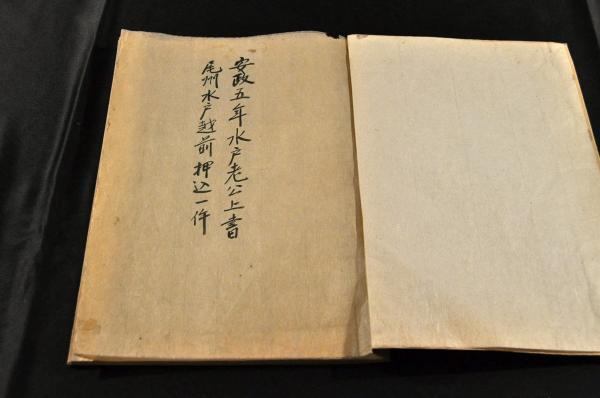 安政五年水戸老公上書
尾州水戸越前押込一件